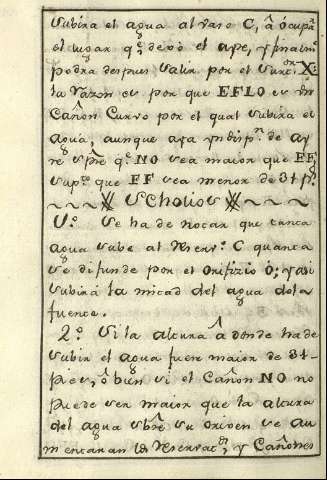 Subira el agua al vaso C, â ocupar
el lugar qᵉ dexò el ayre, y finalmᵗᵉ
podra despues salir por el surtᵒʳ X:
la razon es por que EFLO es un
Cañon Curvo por el qual subira el
agua, aunque aya yndispⁿ de ay
re spᵉ qᵉ NO sea maior que EF,
supᵗᵒ que EF sea menor de 31 pˢ
Scholios
1º. Se ha de notar que tanta
agua sube al reserᵒ C quanta
se difunde por el orifizio O; y asi
subirá la mitad del agua dela
fuente.
2º Si la altura â donde ha de
subir el agua fuere maior de 31
pies, ô bien si el Cañon NO no
puede ser maior que la altura
del agua sbʳᵉ su orixen se au
mentaran los reservatᵒˢ, y Cañones